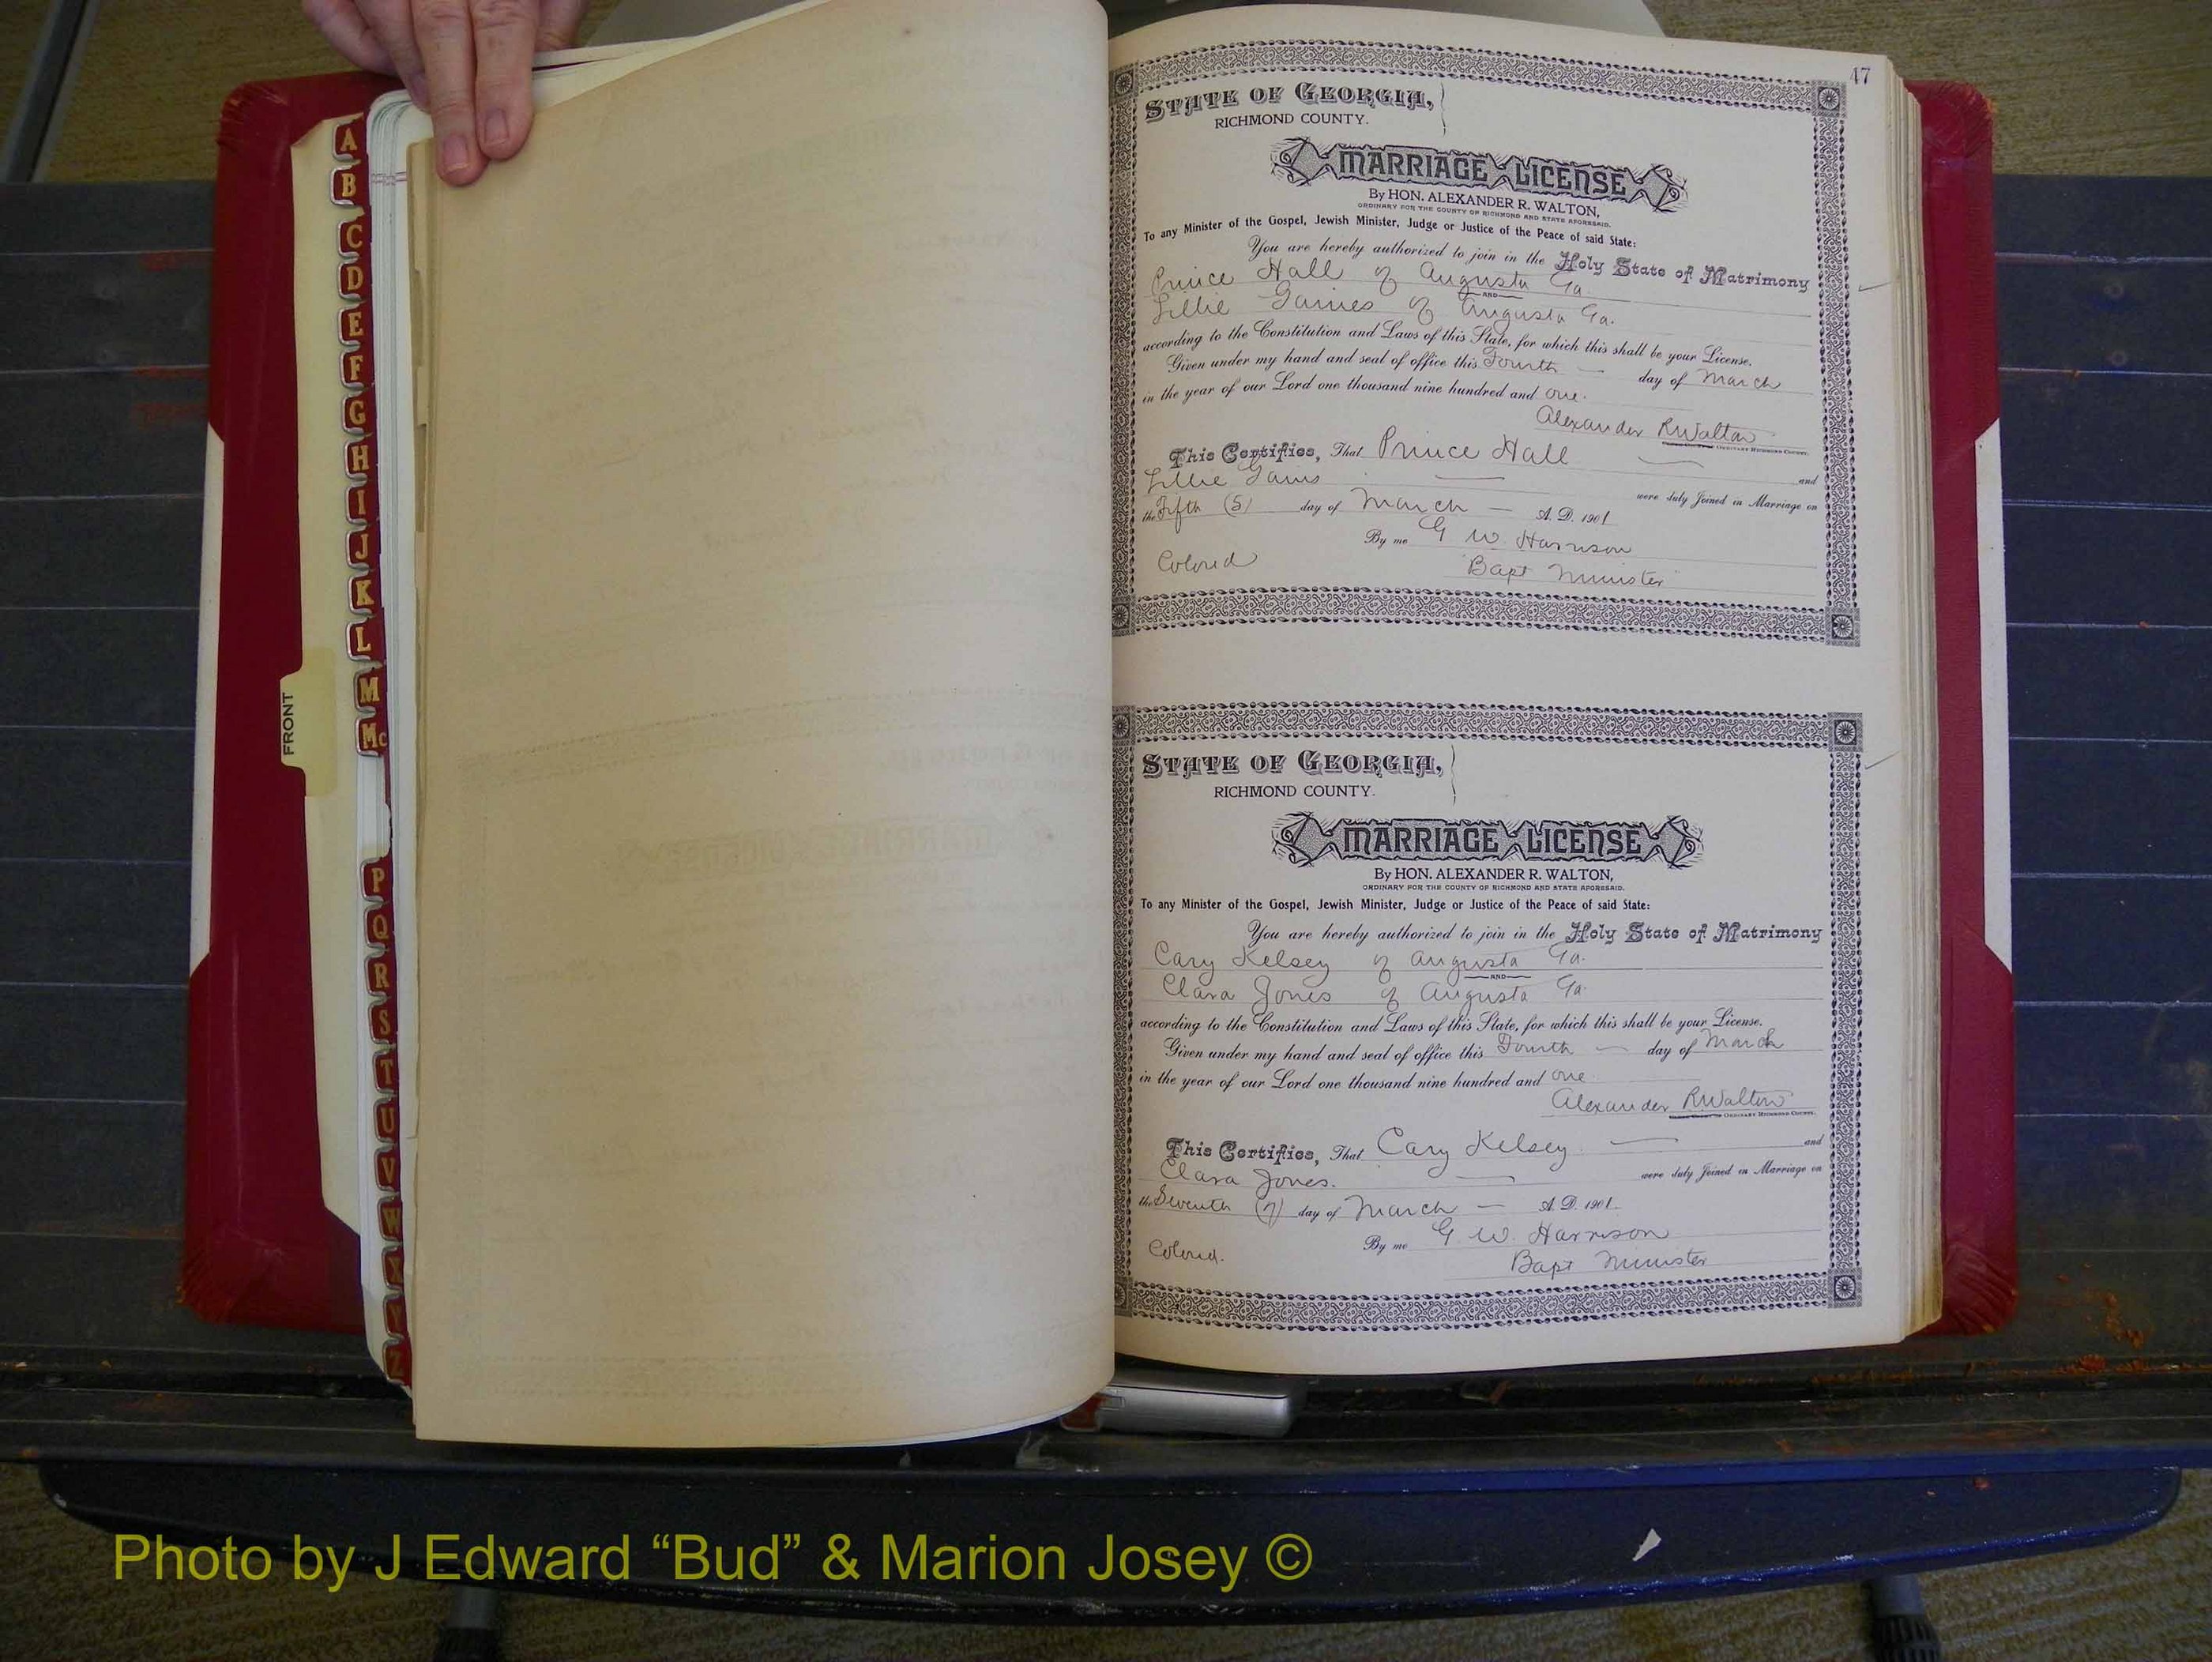 A
B
C
D
E
F
G
H
I
J
K
L
M
Mc
P
Q
R
S
T
U
V
W
X
Y
Z
FRONT
47
STATE OF GEORGIA,
RICHMOND COUNTY.
MARRIAGE LICENSE
By HON. ALEXANDER R. WALTON,
ORDINARY FOR THE COUNTY OF RICHMOND AND STATE AFORESAID.
To any Minister of the Gospel, Jewish Minister, Judge or Justice of the Peace of said State:
You are hereby authorized to join in the Holy State of Matrimony
Prince Hall of Augusta Ga.
AND
Lillie Gaines of Augusta Ga.
according to the Constitution and Laws of this State, for which this shall be your License.
Given under my hand and seal of office this Fourth day of March
in the year of our Lord one thousand nine hundred and one.
Alexander R Walton
ORDINARY RICHMOND COUNTY.
This Certifies, That Prince Hall and
Lillie Gains were duly Joined in Marriage on
the Fifth (5) day of March A. D. 1901
By me G W. Harrison
Colored Bapt Minister
STATE OF GEORGIA,
RICHMOND COUNTY.
MARRIAGE LICENSE
By HON. ALEXANDER R. WALTON,
ORDINARY FOR THE COUNTY OF RICHMOND AND STATE AFORESAID.
To any Minister of the Gospel, Jewish Minister, Judge or Justice of the Peace of said State:
You are hereby authorized to join in the Holy State of Matrimony
Cary Kelsey of Augusta Ga.
AND
Clara Jones of Augusta Ga.
according to the Constitution and Laws of this State, for which this shall be your License.
Given under my hand and seal of office this Fourth day of March
in the year of our Lord one thousand nine hundred and one
Alexander R Walton
ORDINARY RICHMOND COUNTY.
This Certifies, That Cary Kelsey and
Clara Jones. were duly Joined in Marriage on
the Seventh (7) day of March A. D. 1901.
By me G. W. Harrison
Colored. Bapt Minister
Photo by J Edward “Bud” & Marion Josey ©